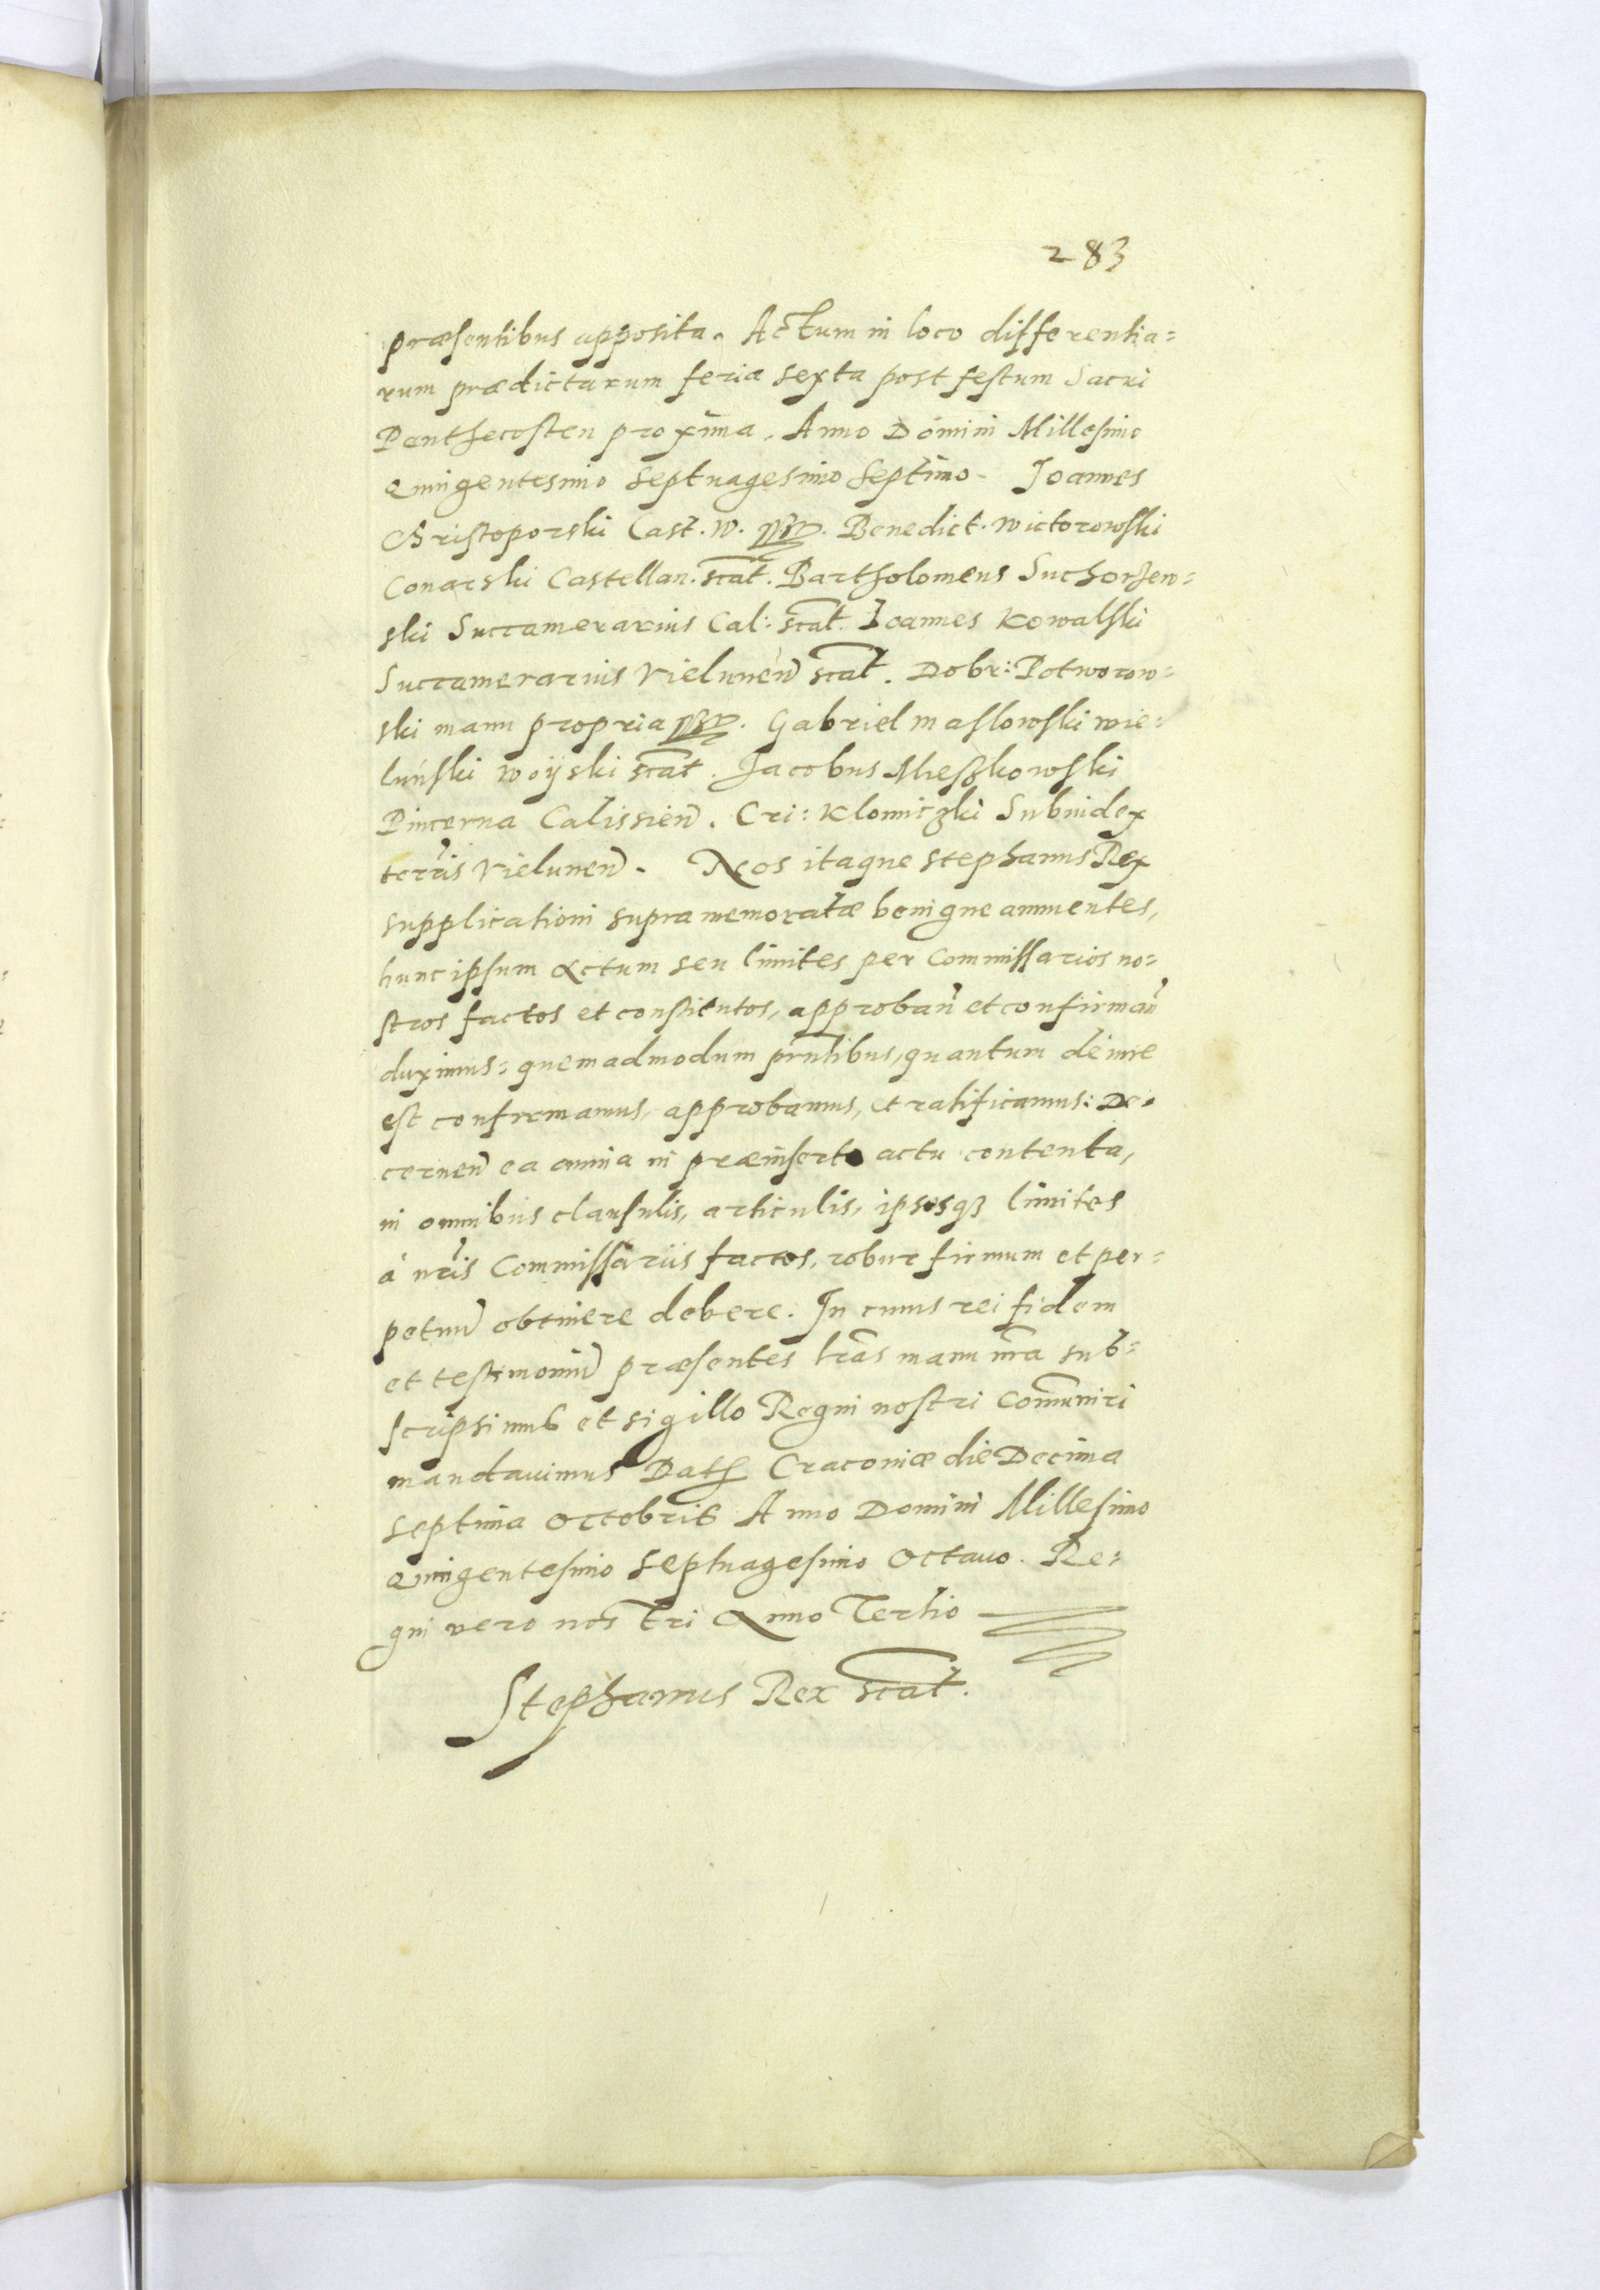 283
præsentibus apposita. Actum in loco differentia=
rum prædictarum feria sexta post festum Sacri
Penthecosten proxima. Anno Domini Millesimo
Quingentesimo Septuagesimo Septimo. Joannes
Christoporski Cast. W. Benedict. Wictorowski
Conarski Castellan. scat. Bartholomeus Suchorzew=
ski Succamerarius Cal: scat. Joannes Kowalski
Succamerarius Vielunen scat. Dobr: Potworow=
ski manu propria. Gabriel Maslowski wie=
luński woÿski scat. Jacobus Meszkowski
Pincerna Calissien. Cri: Klomiczki Subiudex
terris Vielunen. Nos itaque Stephanus Rex
supplicationi supra memoratæ benigne annuentes,
hunc ipsum actum seu limites per Commissarios no=
stros factos et constitutos, approban et confirman
duximus: quemadmodum pntibus, quantum de iure
est confirmamus, approbamus, et ratificamus: De=
cernen ea omnia in præinserto actu contenta,
in omnibus clausulis, articulis, ipsosq3 limites
à nris Commissariis factos, robur firmum et per=
petuu obtinere debere. In cuius rei fidem
et testimoniu præsentes lras manu nra sub=
scripsimus et sigillo Regni nostri Comuniri
mandavimus Dat Cracoviæ die Decima
septima Octobris Anno Domini Millesimo
Quingentesimo Septuagesimo Octavo. Re=
gni vero nostri Anno Tertio
Stephanus Rex scat.